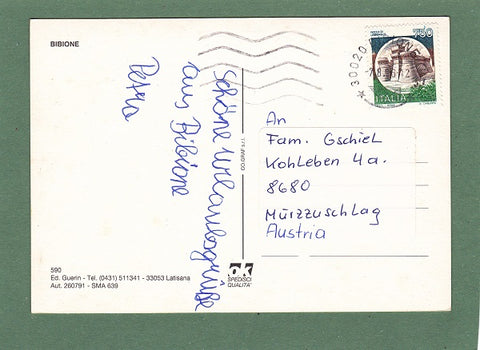 BIBIONE
Schöne Urlaubsgrüße
aus Bibione
Petra
750
ITALIA
30020
An
Fam. Gschiel
Kohleben 4a.
8680
Mürzzuschlag
Austria
590
Ed. Guerin - Tel. (0431) 511341 - 33053 Latisana
Aut. 260791 - SMA 639
ok
SPEDISCI
QUALITA'